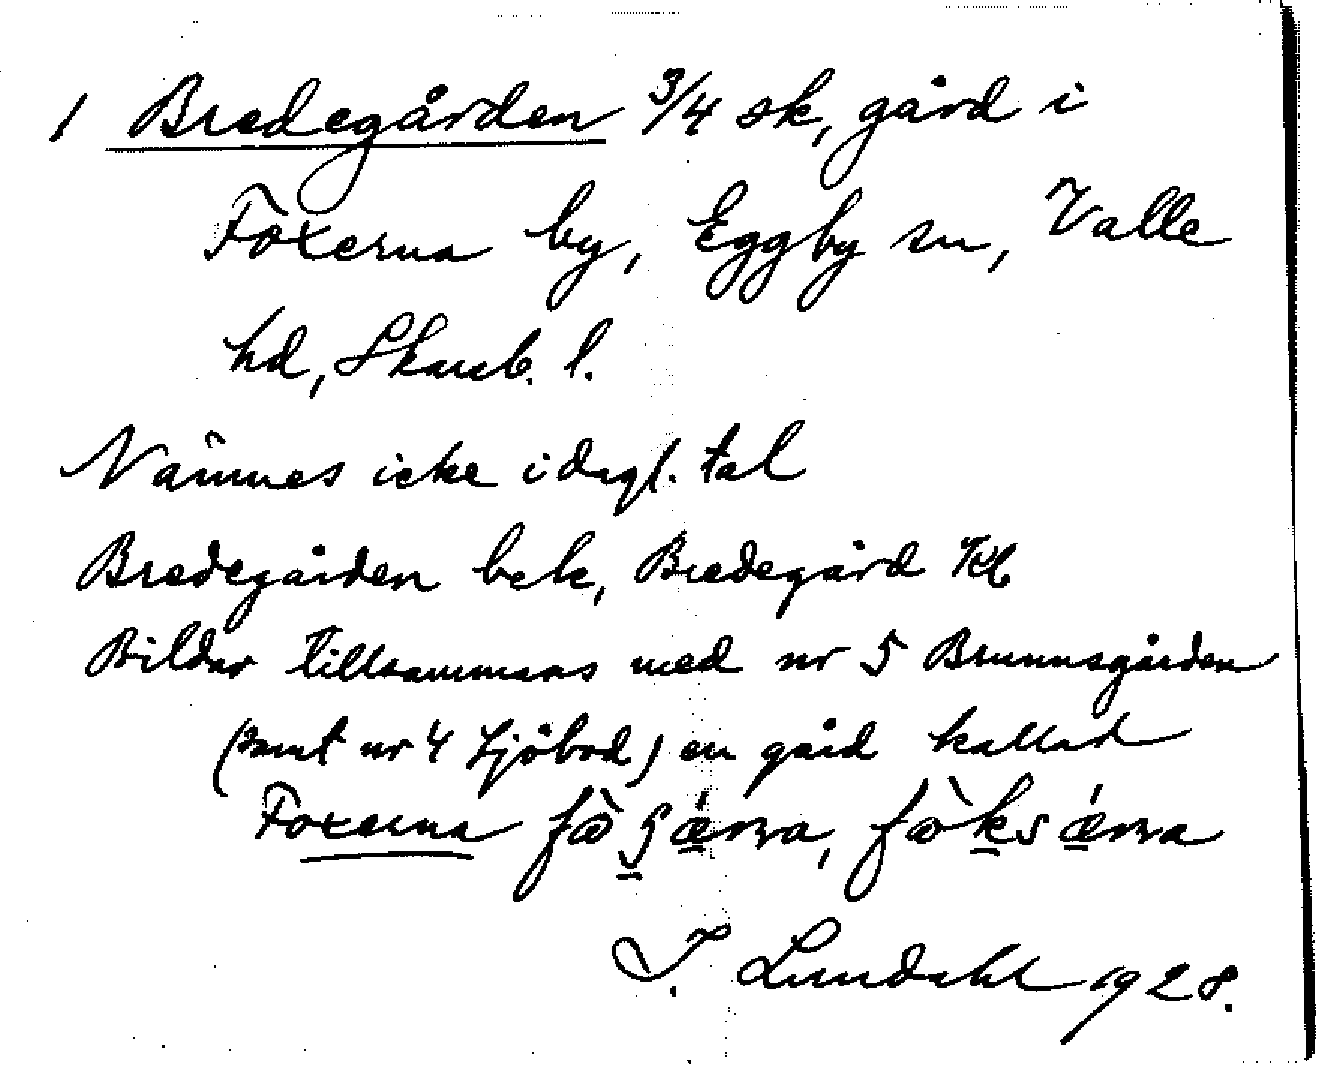 1 Bredegården 3/4 sk, gård i
Foxerna by, Eggby sn, Valle
hd, Skarab. l.
Nämnes icke i dagl. tal
Bredegården bek, Bredegård
Bildar tillsammans med nr 5 Brunnsgården
(samt nr 4 Ljöbod) en gård kallad
Foxerna
Lundahl 1928.